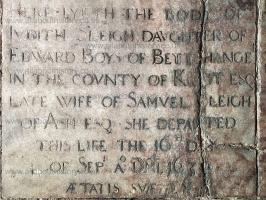 HERE LYETH THE BODY OF
IVDITH SLEIGH DAUGHTER OF
EDWARD BOYS OF BETTSHANGER
IN THE COVNTY OF KENT ESQ
LATE WIFE OF SAMVEL SLEIGH
OF ASH ESQ SHE DEPARTED
THIS LIFE THE 16TH DAY
OF SEPT A° DNI 167
ÆTATIS SVÆ